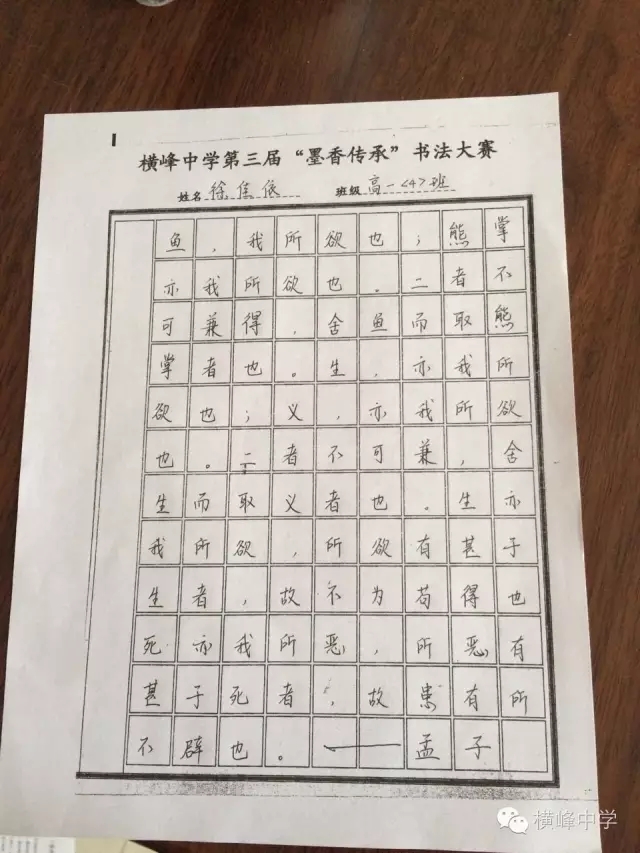 横峰中学第三届“墨香传承”书法大赛
姓名 徐佳依 班级 高一<4>班
鱼，我所欲也；熊掌
亦我所欲也。二者不
可兼得，舍鱼而取熊
掌者也。生，亦我所
欲也；义，亦我所欲
也。二者不可兼，舍
生而取义者也。生亦
我所欲，所欲有甚于
生者，故不为苟得也
死亦我所恶，所恶有
甚于死者，故患有所
不辟也。——孟子
横峰中学